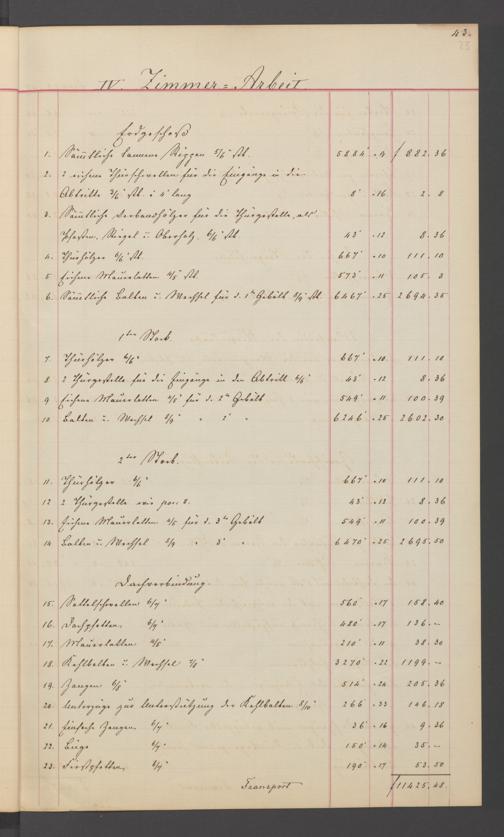 43.
23
IV. Zimmer=Arbeit
Erdgeschoß
1. Sämtliche tannene Rippen 5/6 st. 5884' .9 f 882.36
2. 2 eichene Thürschwellen für die Eingänge in die
Abtritte 3/6 st. à 4' lang 8' .16 2.8
3. Sämtliche Verbandhölzer für die Thürgestelle, als
Pfosten, Riegel u. Oberholz 6/6 st. 43' .12 8.36
4. Thürhölzer 6/6 st. 667' .10 111.10
5. Eichene Mauerlatten 4/5 st. 573' .11 105.3
6. Sämtliche Balken u. Wechsel für d. 1te Gebälk 8/9 st. 6467' .25 2694.35
1ter Stock.
7. Thürhölzer 6/6" 667' .10 111.10
8. 2 Thürgestelle für die Eingänge in den Abtritt 6/6" 43' .12 8.36
9. Eichene Mauerlatten 4/5" für d. 2te Gebälk 549' .11 100.39
10. Balken u. Wechsel 8/9" " 2' " 6246' .25 2602.30
2ter Stock.
11. Thürhölzer 6/6" 667' .10 111.10
12. 2 Thürgestelle wie pos. 8. 43' .12 8.36
13. Eichene Mauerlatten 4/5 für d. 3te Gebälk 549' .11 100.39
14. Balken u. Wechsel 8/9 " 3' " 6470' .25 2695.50
Dachverbindung.
15. Sattelschwellen 6/7" 560' .17 158.40
16. Dachpfetten 6/7" 480' .17 136.–
17. Mauerlatten 4/5" 210' .11 38.30
18. Kehlbalken u. Wechsel 7/8" 3270' .22 1199.–
19. Zangen 6/8" 514' .24 205.36
20. Unterzüge zur Unterstützung der Kehlbalken 8/10" 266' .33 146.18
21. Einfache Zangen 6/7" 36' .16 9.36
22. Büge 6/7" 150' .14 35.–
23. Firstpfetten 6/7" 190' .17 53.50
Transport f 11425.48.